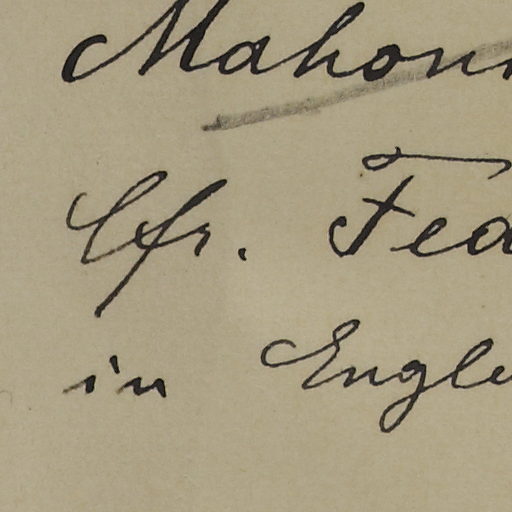 Mahoun
Cfr. Fea
in Engle